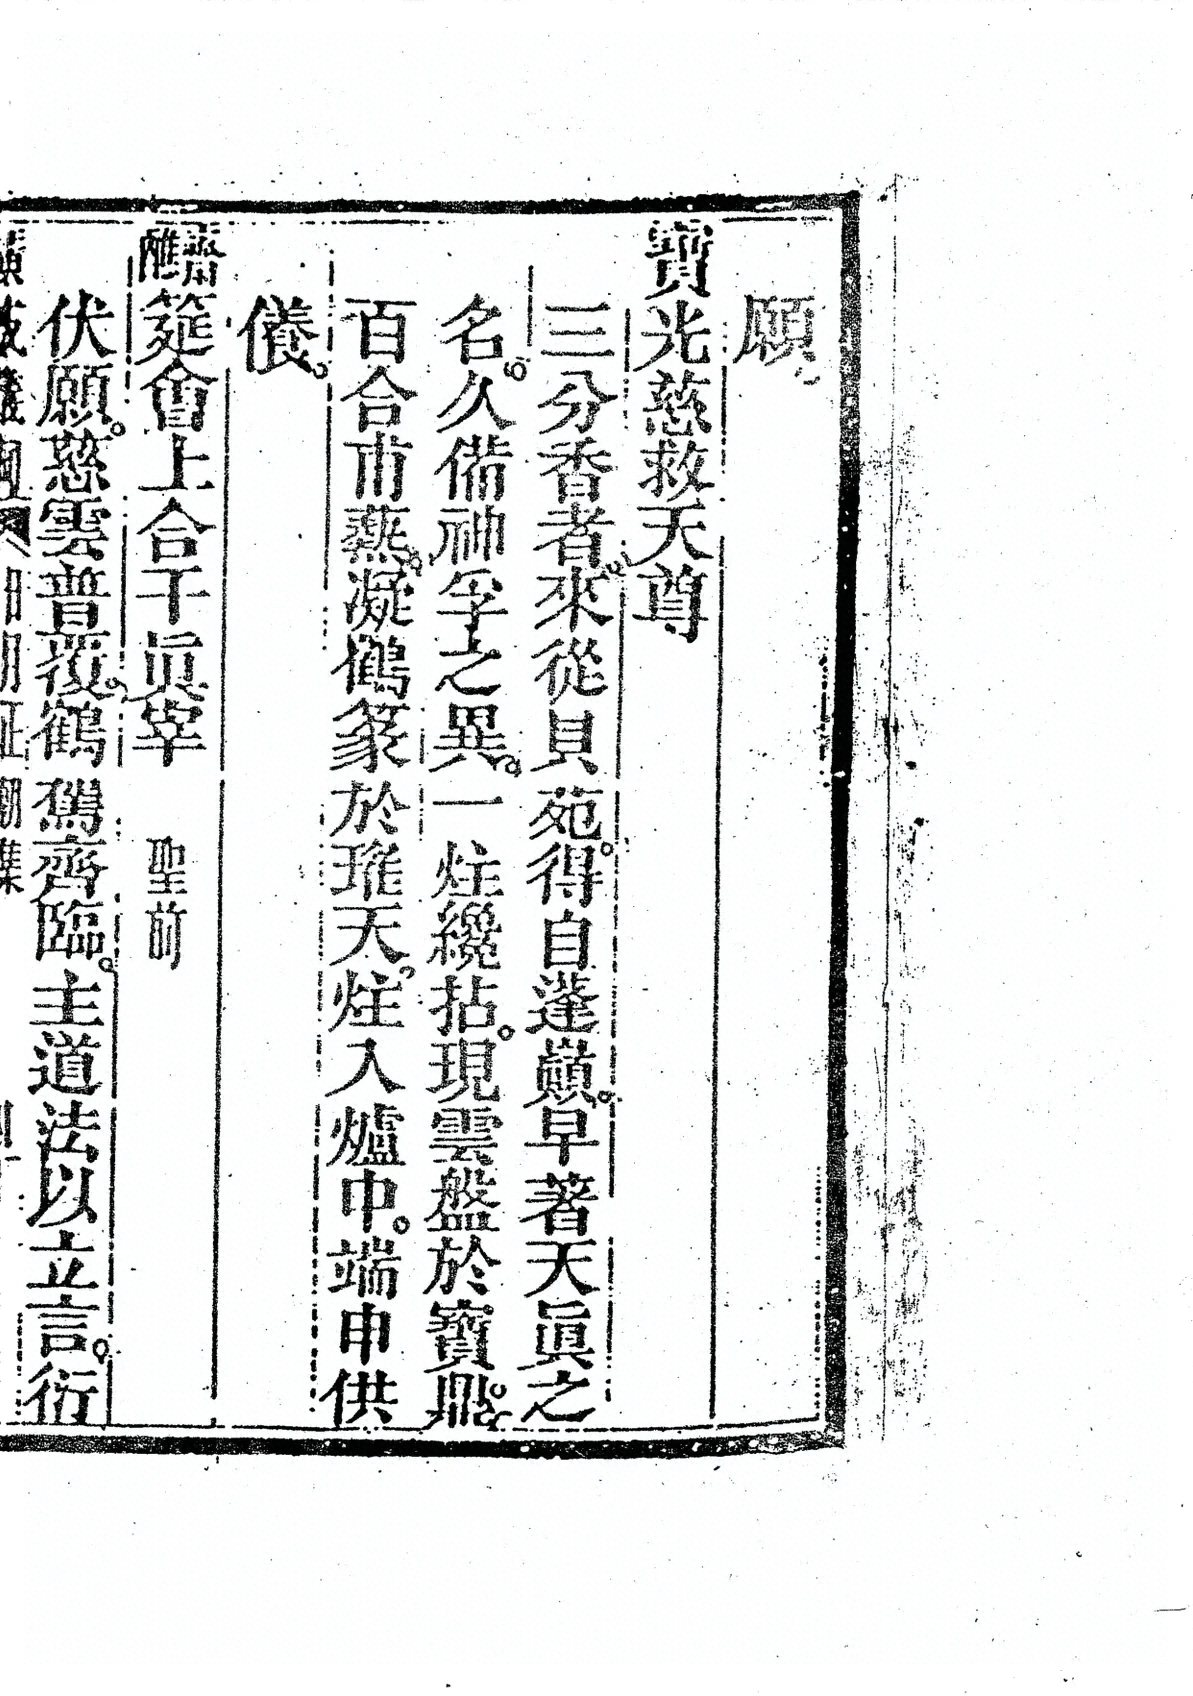 願
寶光慈救天尊
三分香者。來從貝苑。得自蓬巔。早著天眞之
名。久備神孚之異。一炷纔拈。現雲盤於寶鼎。
百合甫爇。凝鶴篆於璀天。炷入爐中。端申供
儀。
齋醮筵會上合干眞宰　聖前
伏願。慈雲普覆。鶴駕齊臨。主道法以立言。衍